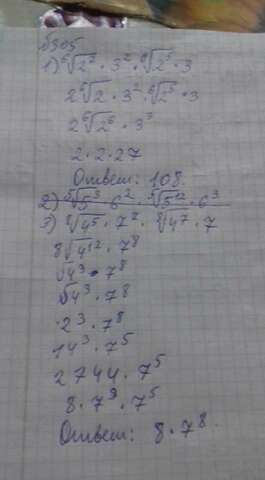 б305
1) ⁶√2² · 3² · ⁶√2⁵ · 3
2 ⁶√2 · 3² · ⁶√2⁵ · 3
2 ⁶√2⁶ · 3³
2 · 2 · 27
Ответ: 108.
2) ⁵√5³ · 6² · ⁵√5¹² · 6³
3) ⁸√4⁵ · 7² · ⁸√4⁷ · 7
⁸√4¹² · 7⁸
√4³ · 7⁸
√4³ · 7⁸
2³ · 7⁸
14³ · 7⁵
2744 · 7⁵
8 · 7³ · 7⁵
Ответ: 8 · 7⁸.